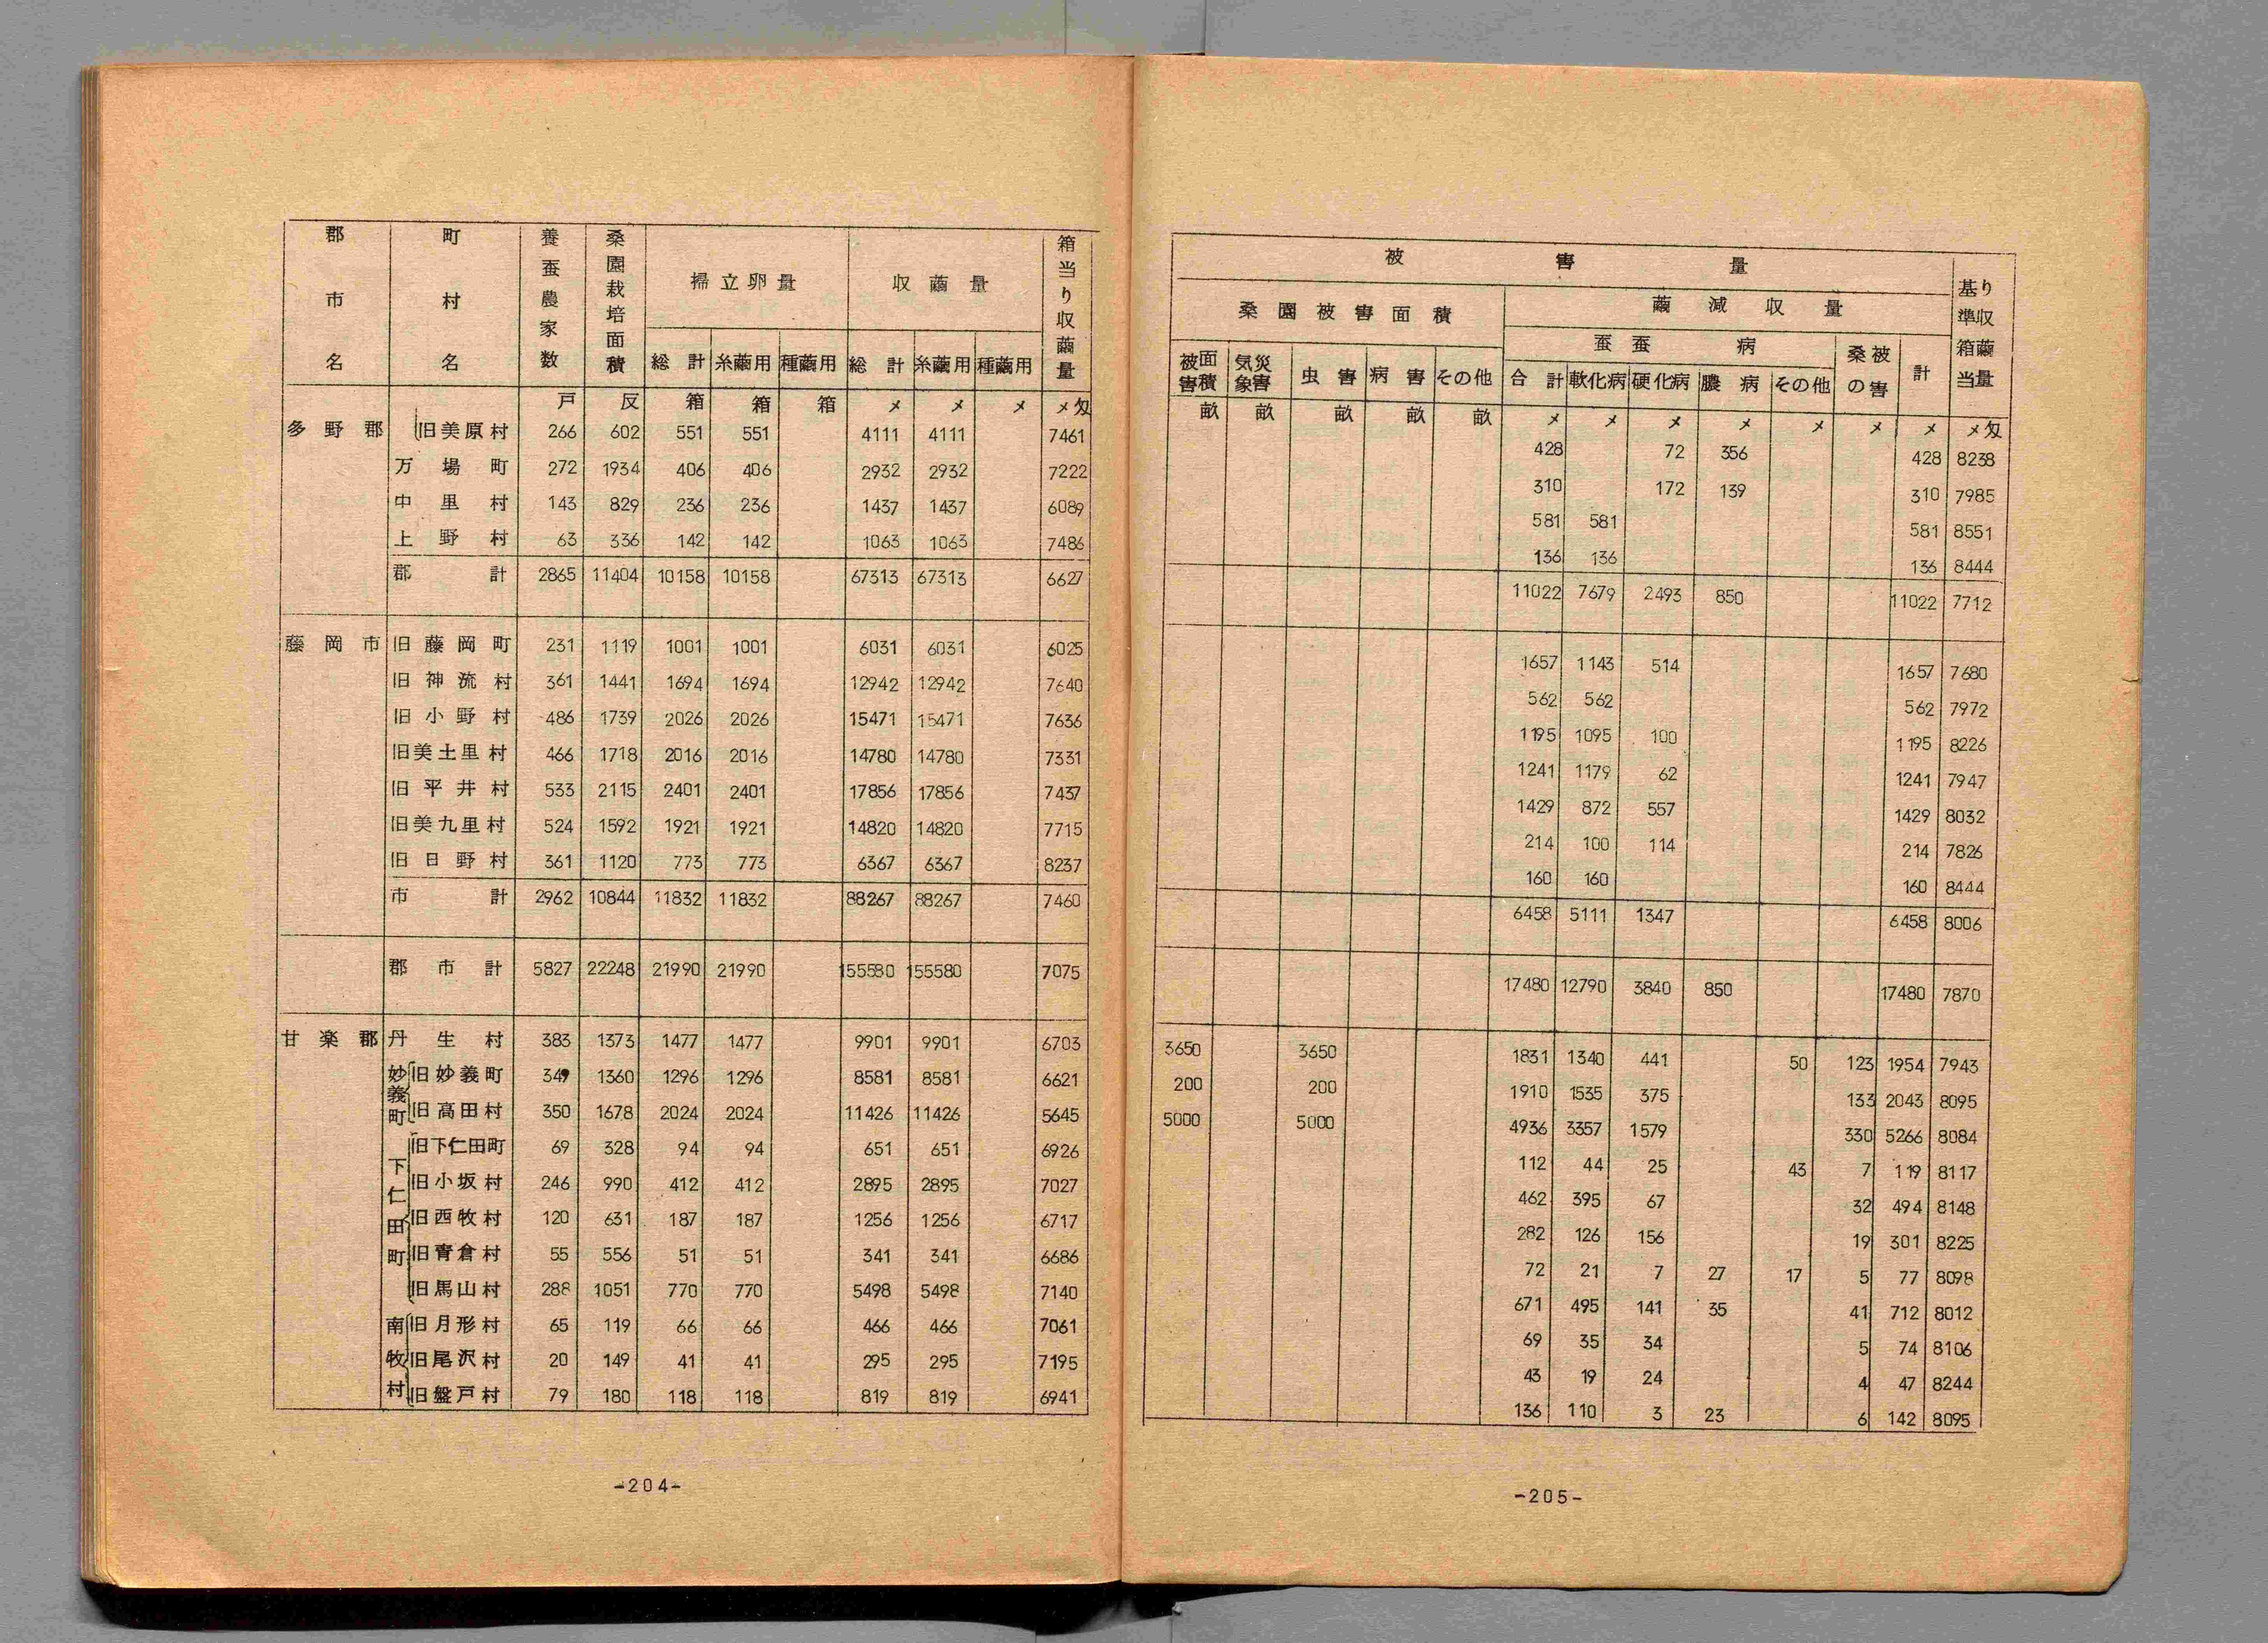 郡市名 町村名 養蚕農家数 桑園栽培面積 掃立卵量 収繭量 箱当り収繭量
総計 糸繭用 種繭用 総計 糸繭用 種繭用
戸 反 箱 箱 箱 メ メ メ メ匁
多野郡 旧美原村 266 602 551 551 4111 4111 7461
万場町 272 1934 406 406 2932 2932 7222
中里村 143 829 236 236 1437 1437 6089
上野村 63 336 142 142 1063 1063 7486
郡計 2865 11404 10158 10158 67313 67313 6627
藤岡市 旧藤岡町 231 1119 1001 1001 6031 6031 6025
旧神流村 361 1441 1694 1694 12942 12942 7640
旧小野村 486 1739 2026 2026 15471 15471 7636
旧美土里村 466 1718 2016 2016 14780 14780 7331
旧平井村 533 2115 2401 2401 17856 17856 7437
旧美九里村 524 1592 1921 1921 14820 14820 7715
旧日野村 361 1120 773 773 6367 6367 8237
市計 2962 10844 11832 11832 88267 88267 7460
郡市計 5827 22248 21990 21990 155580 155580 7075
甘楽郡 丹生村 383 1373 1477 1477 9901 9901 6703
妙義町 旧妙義町 349 1360 1296 1296 8581 8581 6621
旧高田村 350 1678 2024 2024 11426 11426 5645
下仁田町 旧下仁田町 69 328 94 94 651 651 6926
旧小坂村 246 990 412 412 2895 2895 7027
旧西牧村 120 631 187 187 1256 1256 6717
旧青倉村 55 556 51 51 341 341 6686
旧馬山村 288 1051 770 770 5498 5498 7140
南牧村 旧月形村 65 119 66 66 466 466 7061
旧尾沢村 20 149 41 41 295 295 7195
旧盤戸村 79 180 118 118 819 819 6941
-204-
被害量
桑園被害面積 繭減収量 基準箱当り収繭量
蚕蚕病 桑の被害 計
被害面積 気象災害 虫害 病害 その他 合計 軟化病 硬化病 膿病 その他
畝 畝 畝 畝 畝 メ メ メ メ メ メ メ メ匁
428 72 356 428 8238
310 172 139 310 7985
581 581 581 8551
136 136 136 8444
11022 7679 2493 850 11022 7712
1657 1143 514 1657 7680
562 562 562 7972
1195 1095 100 1195 8226
1241 1179 62 1241 7947
1429 872 557 1429 8032
214 100 114 214 7826
160 160 160 8444
6458 5111 1347 6458 8006
17480 12790 3840 850 17480 7870
3650 3650 1831 1340 441 50 123 1954 7943
200 200 1910 1535 375 133 2043 8095
5000 5000 4936 3357 1579 330 5266 8084
112 44 25 43 7 119 8117
462 395 67 32 494 8148
282 126 156 19 301 8225
72 21 7 27 17 5 77 8098
671 495 141 35 41 712 8012
69 35 34 5 74 8106
43 19 24 4 47 8244
136 110 3 23 6 142 8095
-205-